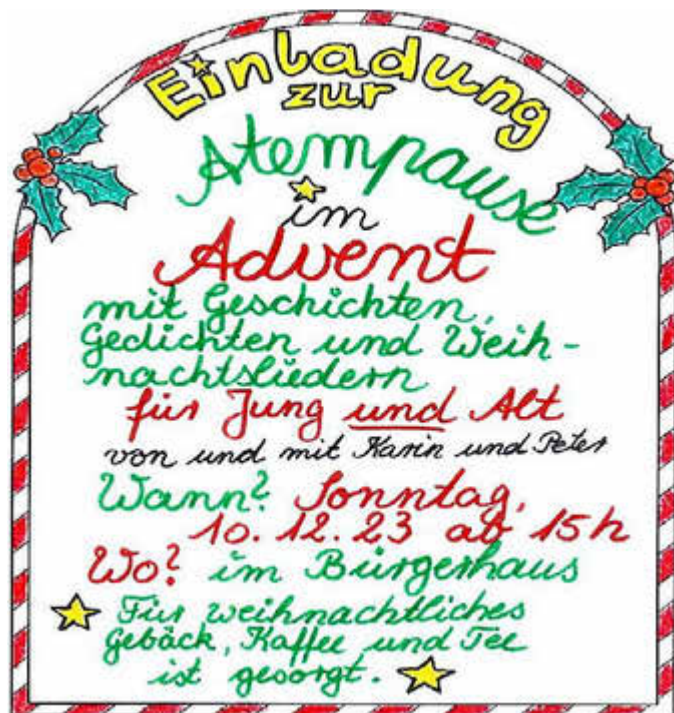 Einladung
zur
Atempause
im
Advent
mit Geschichten,
Gedichten und Weih-
nachtsliedern
für Jung und Alt
von und mit Karin und Peter
Wann? Sonntag,
10.12.23 ab 15h
Wo? im Bürgerhaus
Für weihnachtliches
Gebäck, Kaffee und Tee
ist gesorgt.